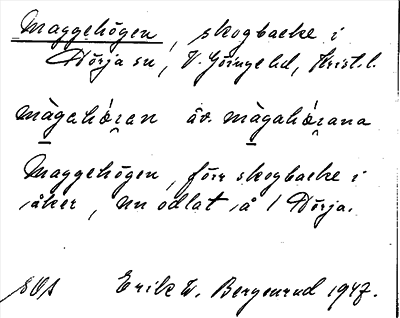 Maggehögen, skogbacke i
Hörja sn, V. Göinge hd, Krist. l.
màgahǫ́ʒan äv. màgahǫ́ʒana
Maggehögen, förr skogbacke i
åker, nu odlat å 1 Hörja.
Erik W. Bergenrud 1947.